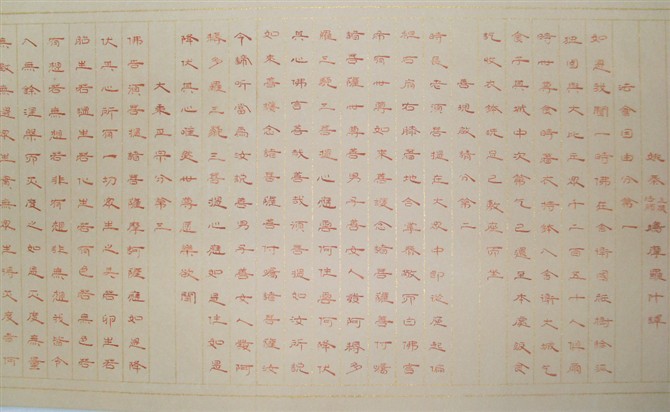 姚秦三藏法師鳩摩羅什譯
法會因由分第一
如是我聞一時佛在舍衛國祇樹給孤
獨園與大比丘眾千二百五十人俱爾
時世尊食時著衣持鉢入舍衛大城乞
食於其城中次第乞已還至本處飯食
訖收衣鉢洗足已敷座而坐
善現啟請分第二
時長老須菩提在大眾中即從座起偏
袒右肩右膝著地合掌恭敬而白佛言
希有世尊如來善護念諸菩薩善付囑
諸菩薩世尊善男子善女人發阿耨多
羅三藐三菩提心應云何住云何降伏
其心佛言善哉善哉須菩提如汝所說
如來善護念諸菩薩善付囑諸菩薩汝
今諦聽當為汝說善男子善女人發阿
耨多羅三藐三菩提心應如是住如是
降伏其心唯然世尊願樂欲聞
大乘正宗分第三
佛告須菩提諸菩薩摩訶薩應如是降
伏其心所有一切眾生之類若卵生若
胎生若濕生若化生若有色若無色若
有想若無想若非有想非無想我皆令
入無餘涅槃而滅度之如是滅度無量
無數無邊眾生實無眾生得滅度者何